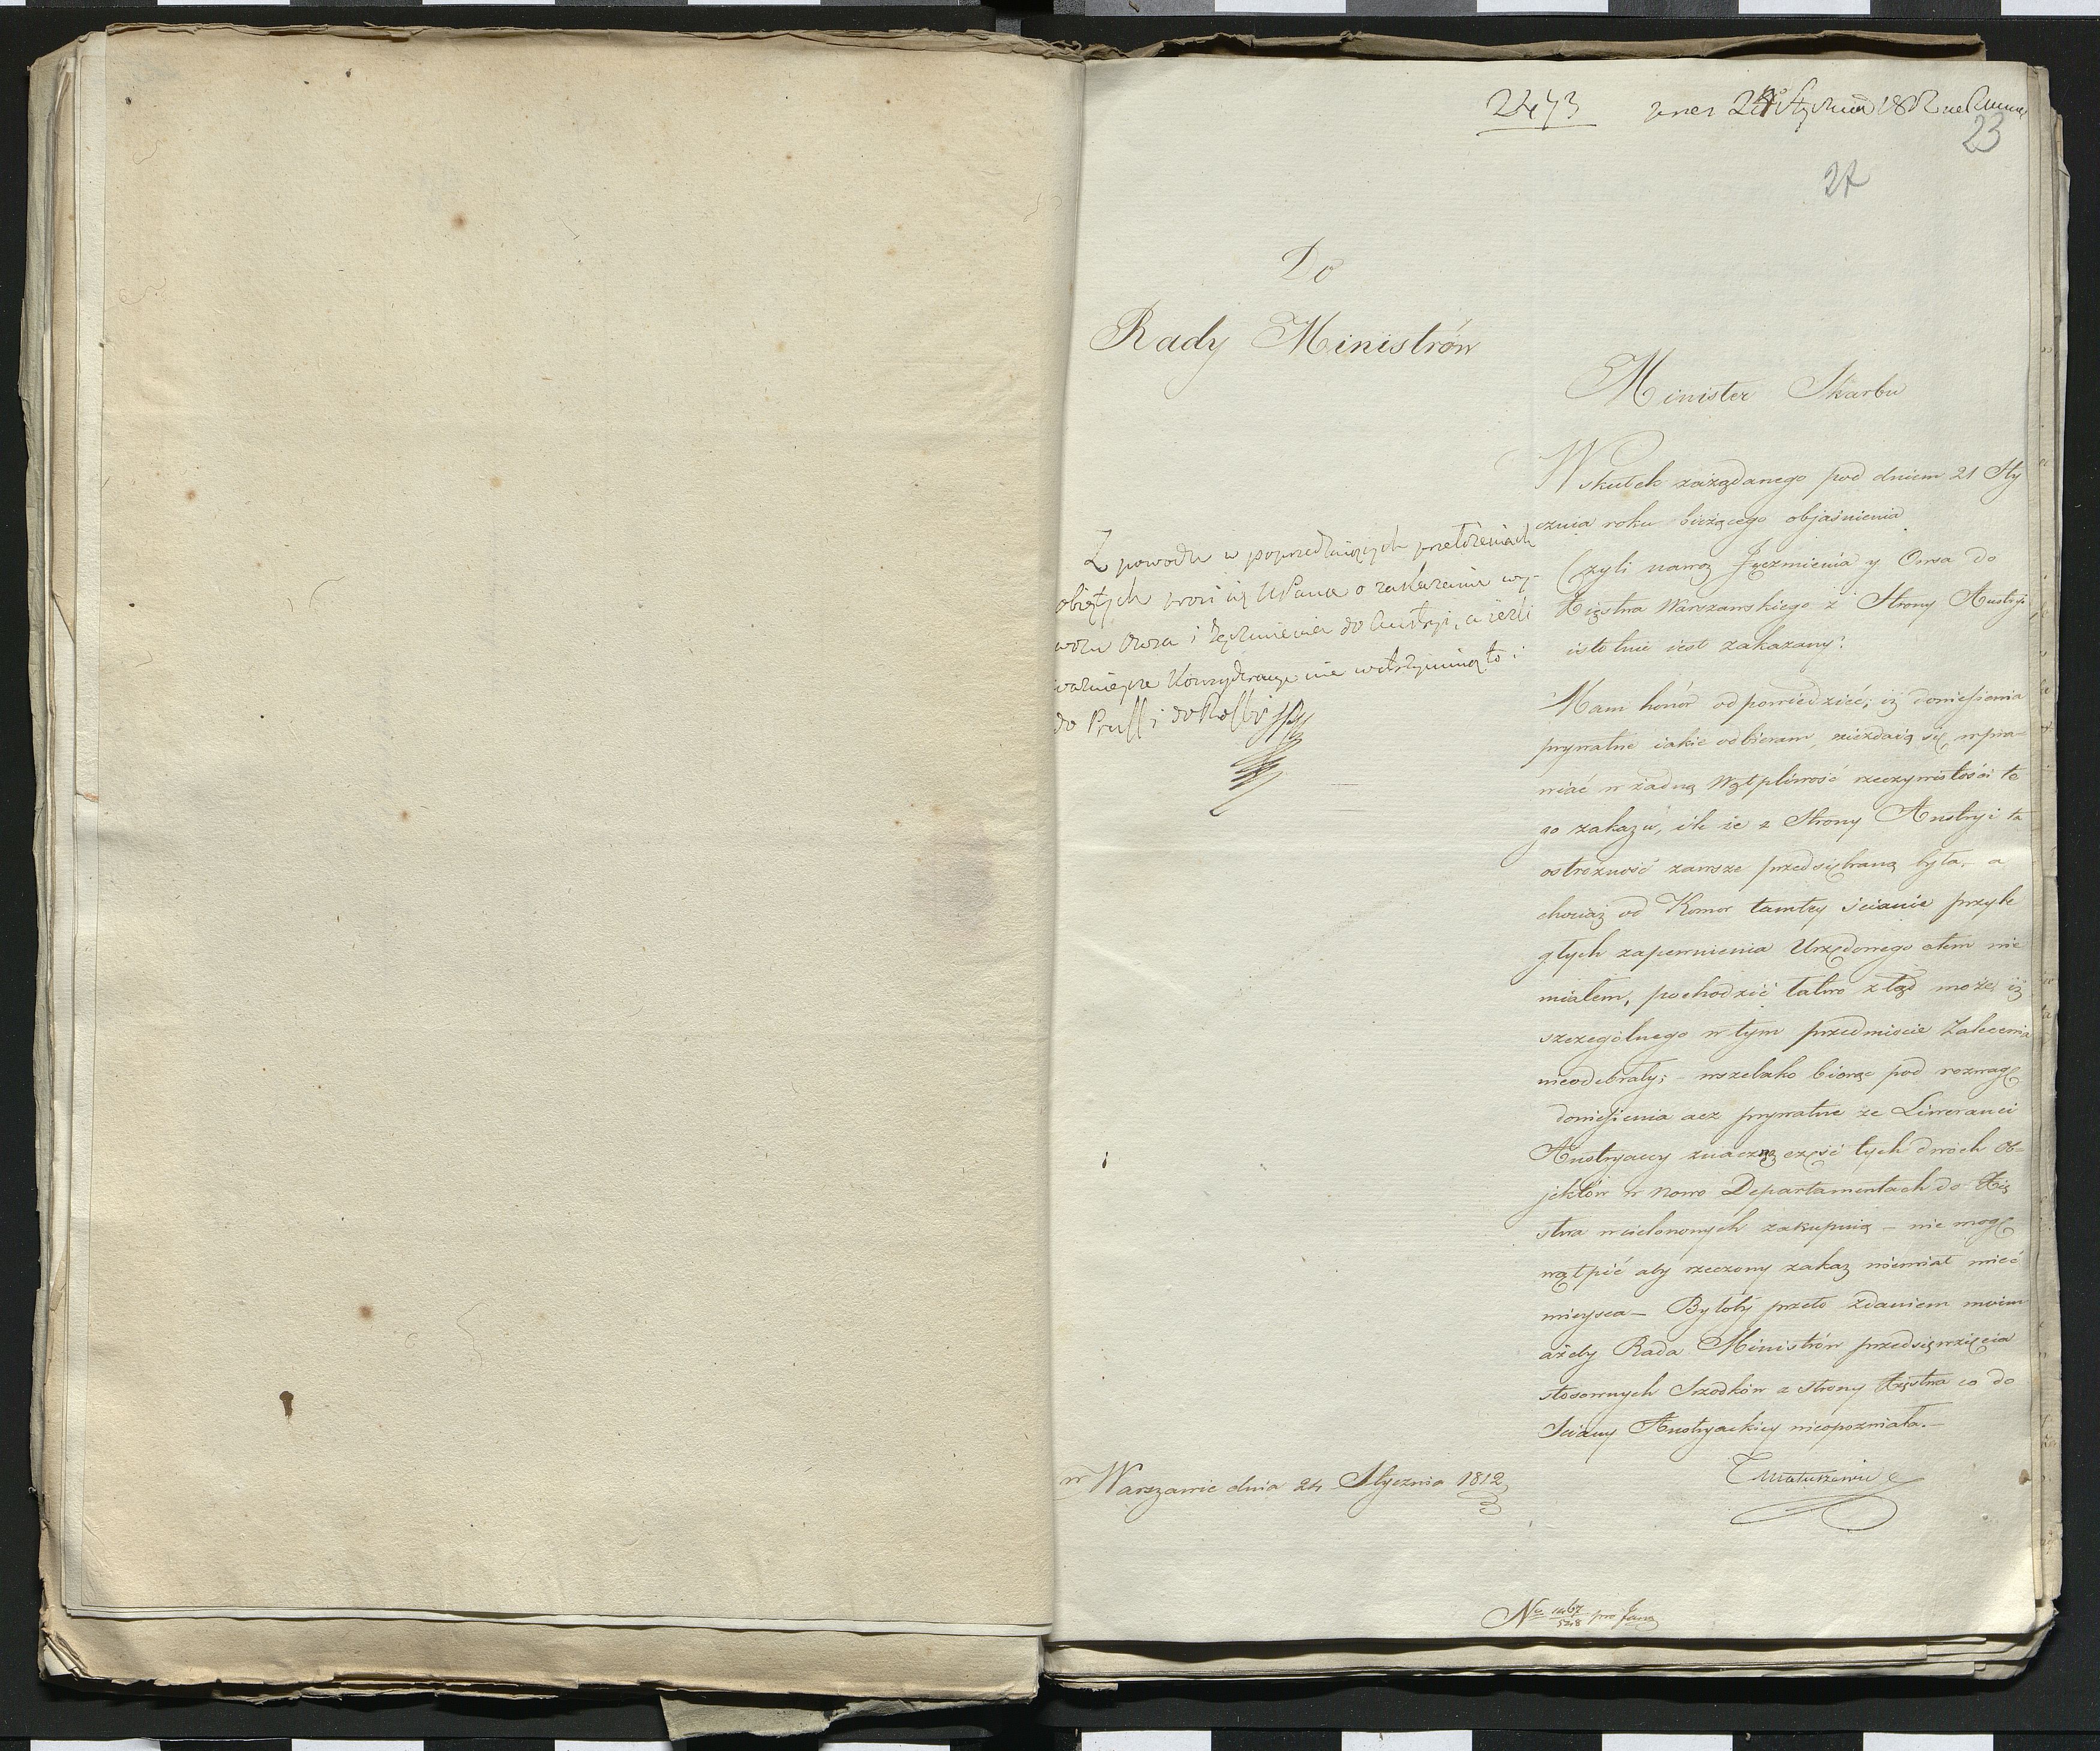 2473 24 Stycznia 1812
23
27
Do
Rady Ministrów
Minister Skarbu
W skutek zażądanego pod dniem 21 Sty
cznia roku bieżącego objaśnienia
Czyli uwoz Jęczmienia y Owsa do
Xięstwa Warszawskiego z Strony Austryi
istotnie iest zakazany:
Mam honor odpowiedzieć, iż doniesienia
prywatne iakie odbieram, niezdaią się wpra-
wiać w żadną Wątpliwość rzeczywistości te
go zakazu, ile że z Strony Austryi ta
ostrożność zawsze przedsiębraną była, a
chociaż od Komor tamtey ścianie przyle
głych zapewnienia Urzędowego otem nie
miałem, pochodzić łatwo ztąd może, iż
szczegolnego w tym przedmiocie Zalecenia
nieodebrały; - wszelako biorąc pod rozwagę
doniesienia acz prywatne że Liweranci
Austryaccy znaczną część tych dwóch Ob-
jektów w nowo Departamentach do Xię
stwa wcielonowych zakupuią - nie mogę
wątpić aby rzeczony zakaz niemiał mieć
mieysca - Byłoby przeto zdaniem moim
ażeby Rada Ministrów przedsięwzięcia
stosownych Srzodków z strony Xięstwa co do
Sciany Austryackiey nieopozniała. -
Matuszewic
Z powodu w poprzedniczych przełożeniach
obiętych prosi się o zakazanie wy-
wozu Owsa i Jęczmienia do Austryi, a ieżli
ważnieysze Konsyderacye nie wstrzymuią to i
do Pruss i do Rossyi
w Warszawie dnia 24 Stycznia 1812
No 1467/528 pro Jana